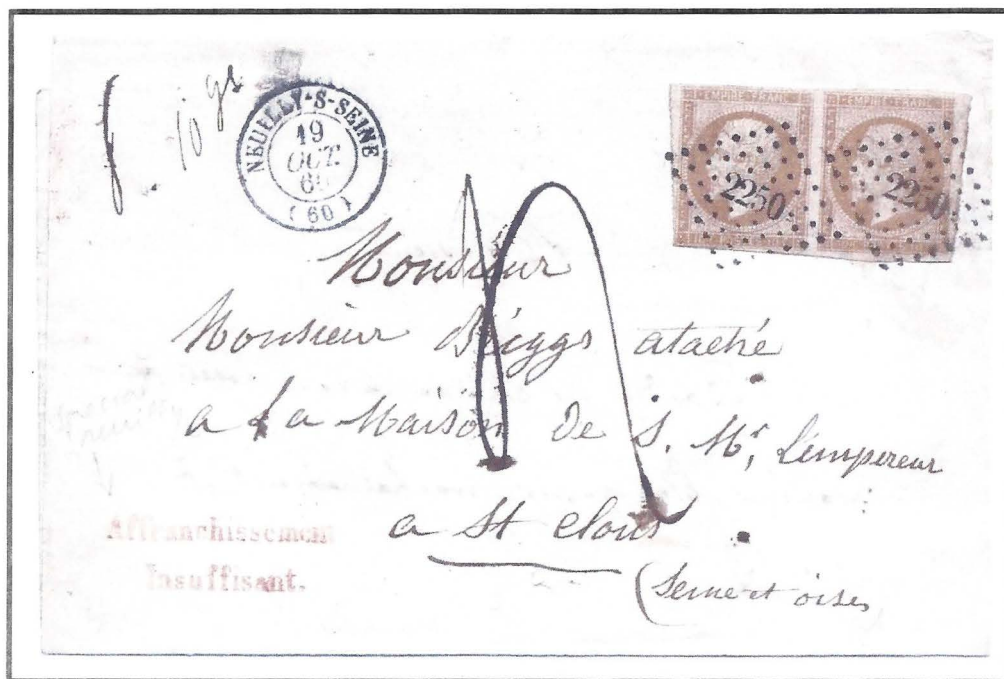 10 gr
NEUILLY-S-SEINE
19
OCT.
(60)
EMPIRE FRANC
EMPIRE FRANC
2250
2250
Monsieur
Monsieur Briggs ataché
a la Maison de S. Mr, L'empereur
a St Cloud
(Seine et oise)
Affranchissement
Insuffisant.